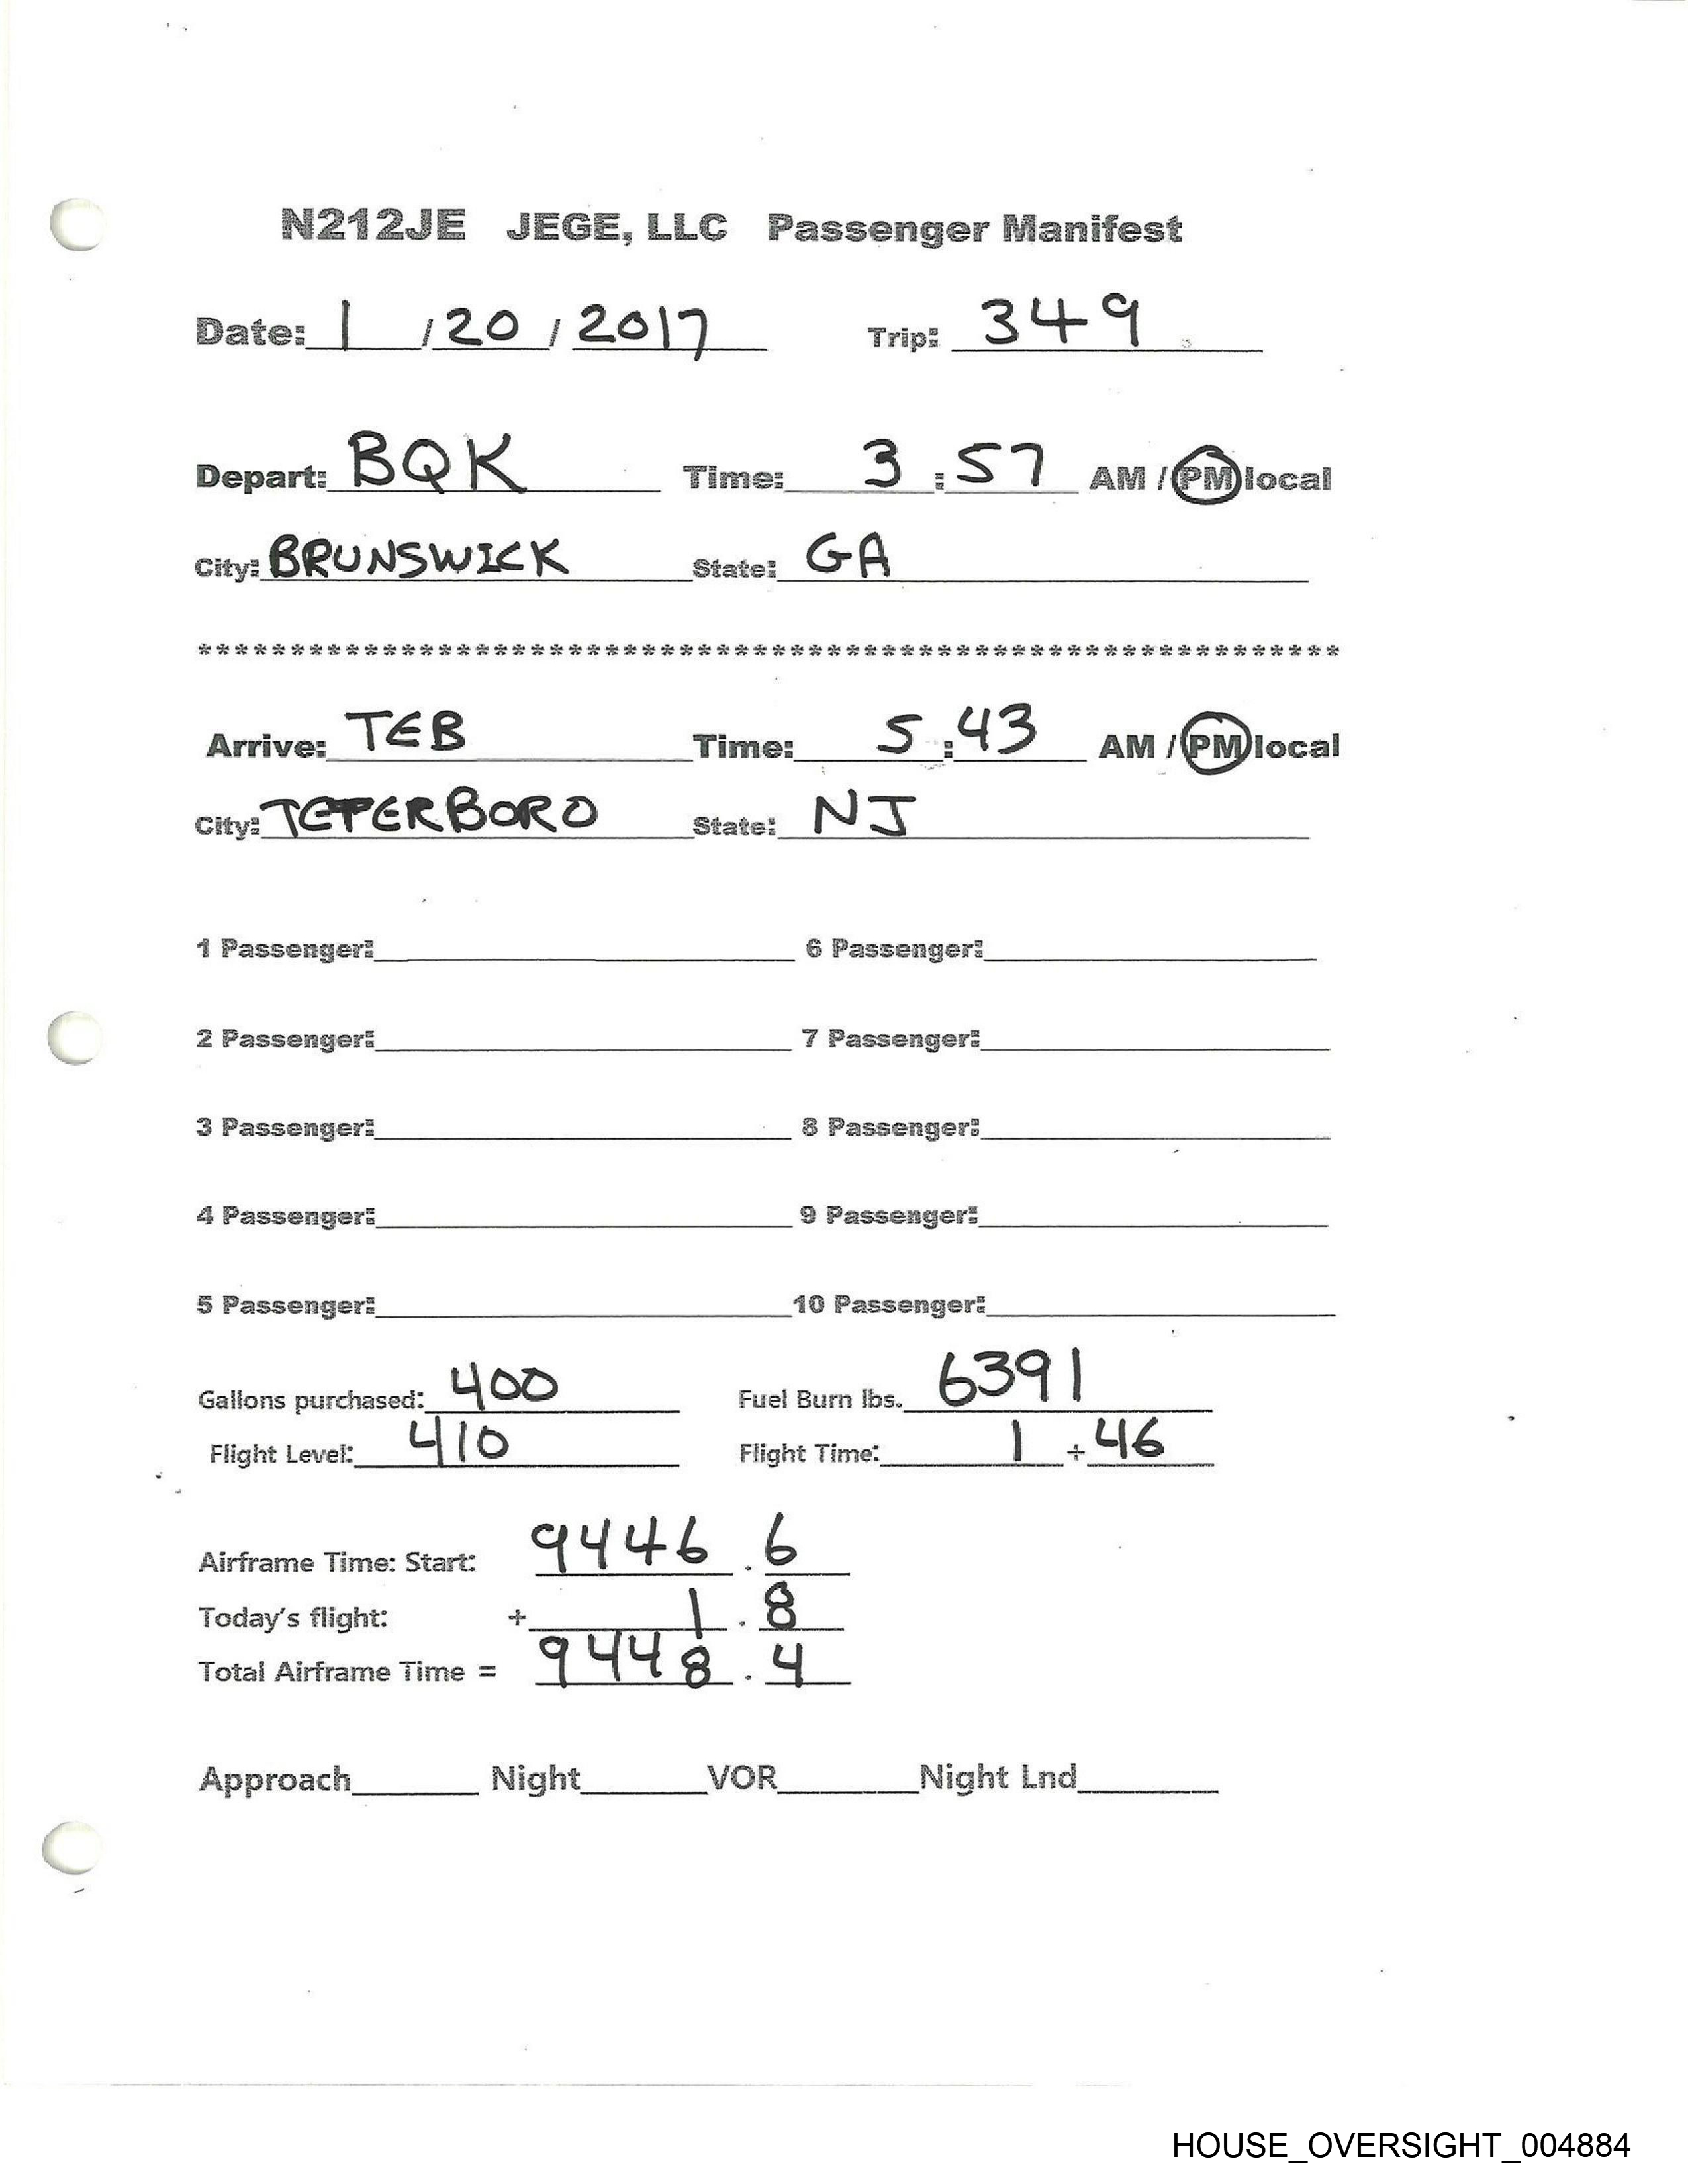 N212JE JEGE, LLC Passenger Manifest
Date: 1 / 20 / 2017 Trip: 349
Depart: BQK Time: 3 : 57 AM / PM local
City: BRUNSWICK State: GA
*************************************************************
Arrive: TEB Time: 5 : 43 AM / PM local
City: TETERBORO State: NJ
1 Passenger: 6 Passenger:
2 Passenger: 7 Passenger:
3 Passenger: 8 Passenger:
4 Passenger: 9 Passenger:
5 Passenger: 10 Passenger:
Gallons purchased: 400 Fuel Burn lbs. 6391
Flight Level: 410 Flight Time: 1 + 46
Airframe Time: Start: 9446 . 6
Today's flight: + 1 . 8
Total Airframe Time = 9448 . 4
Approach Night VOR Night Lnd
HOUSE_OVERSIGHT_004884